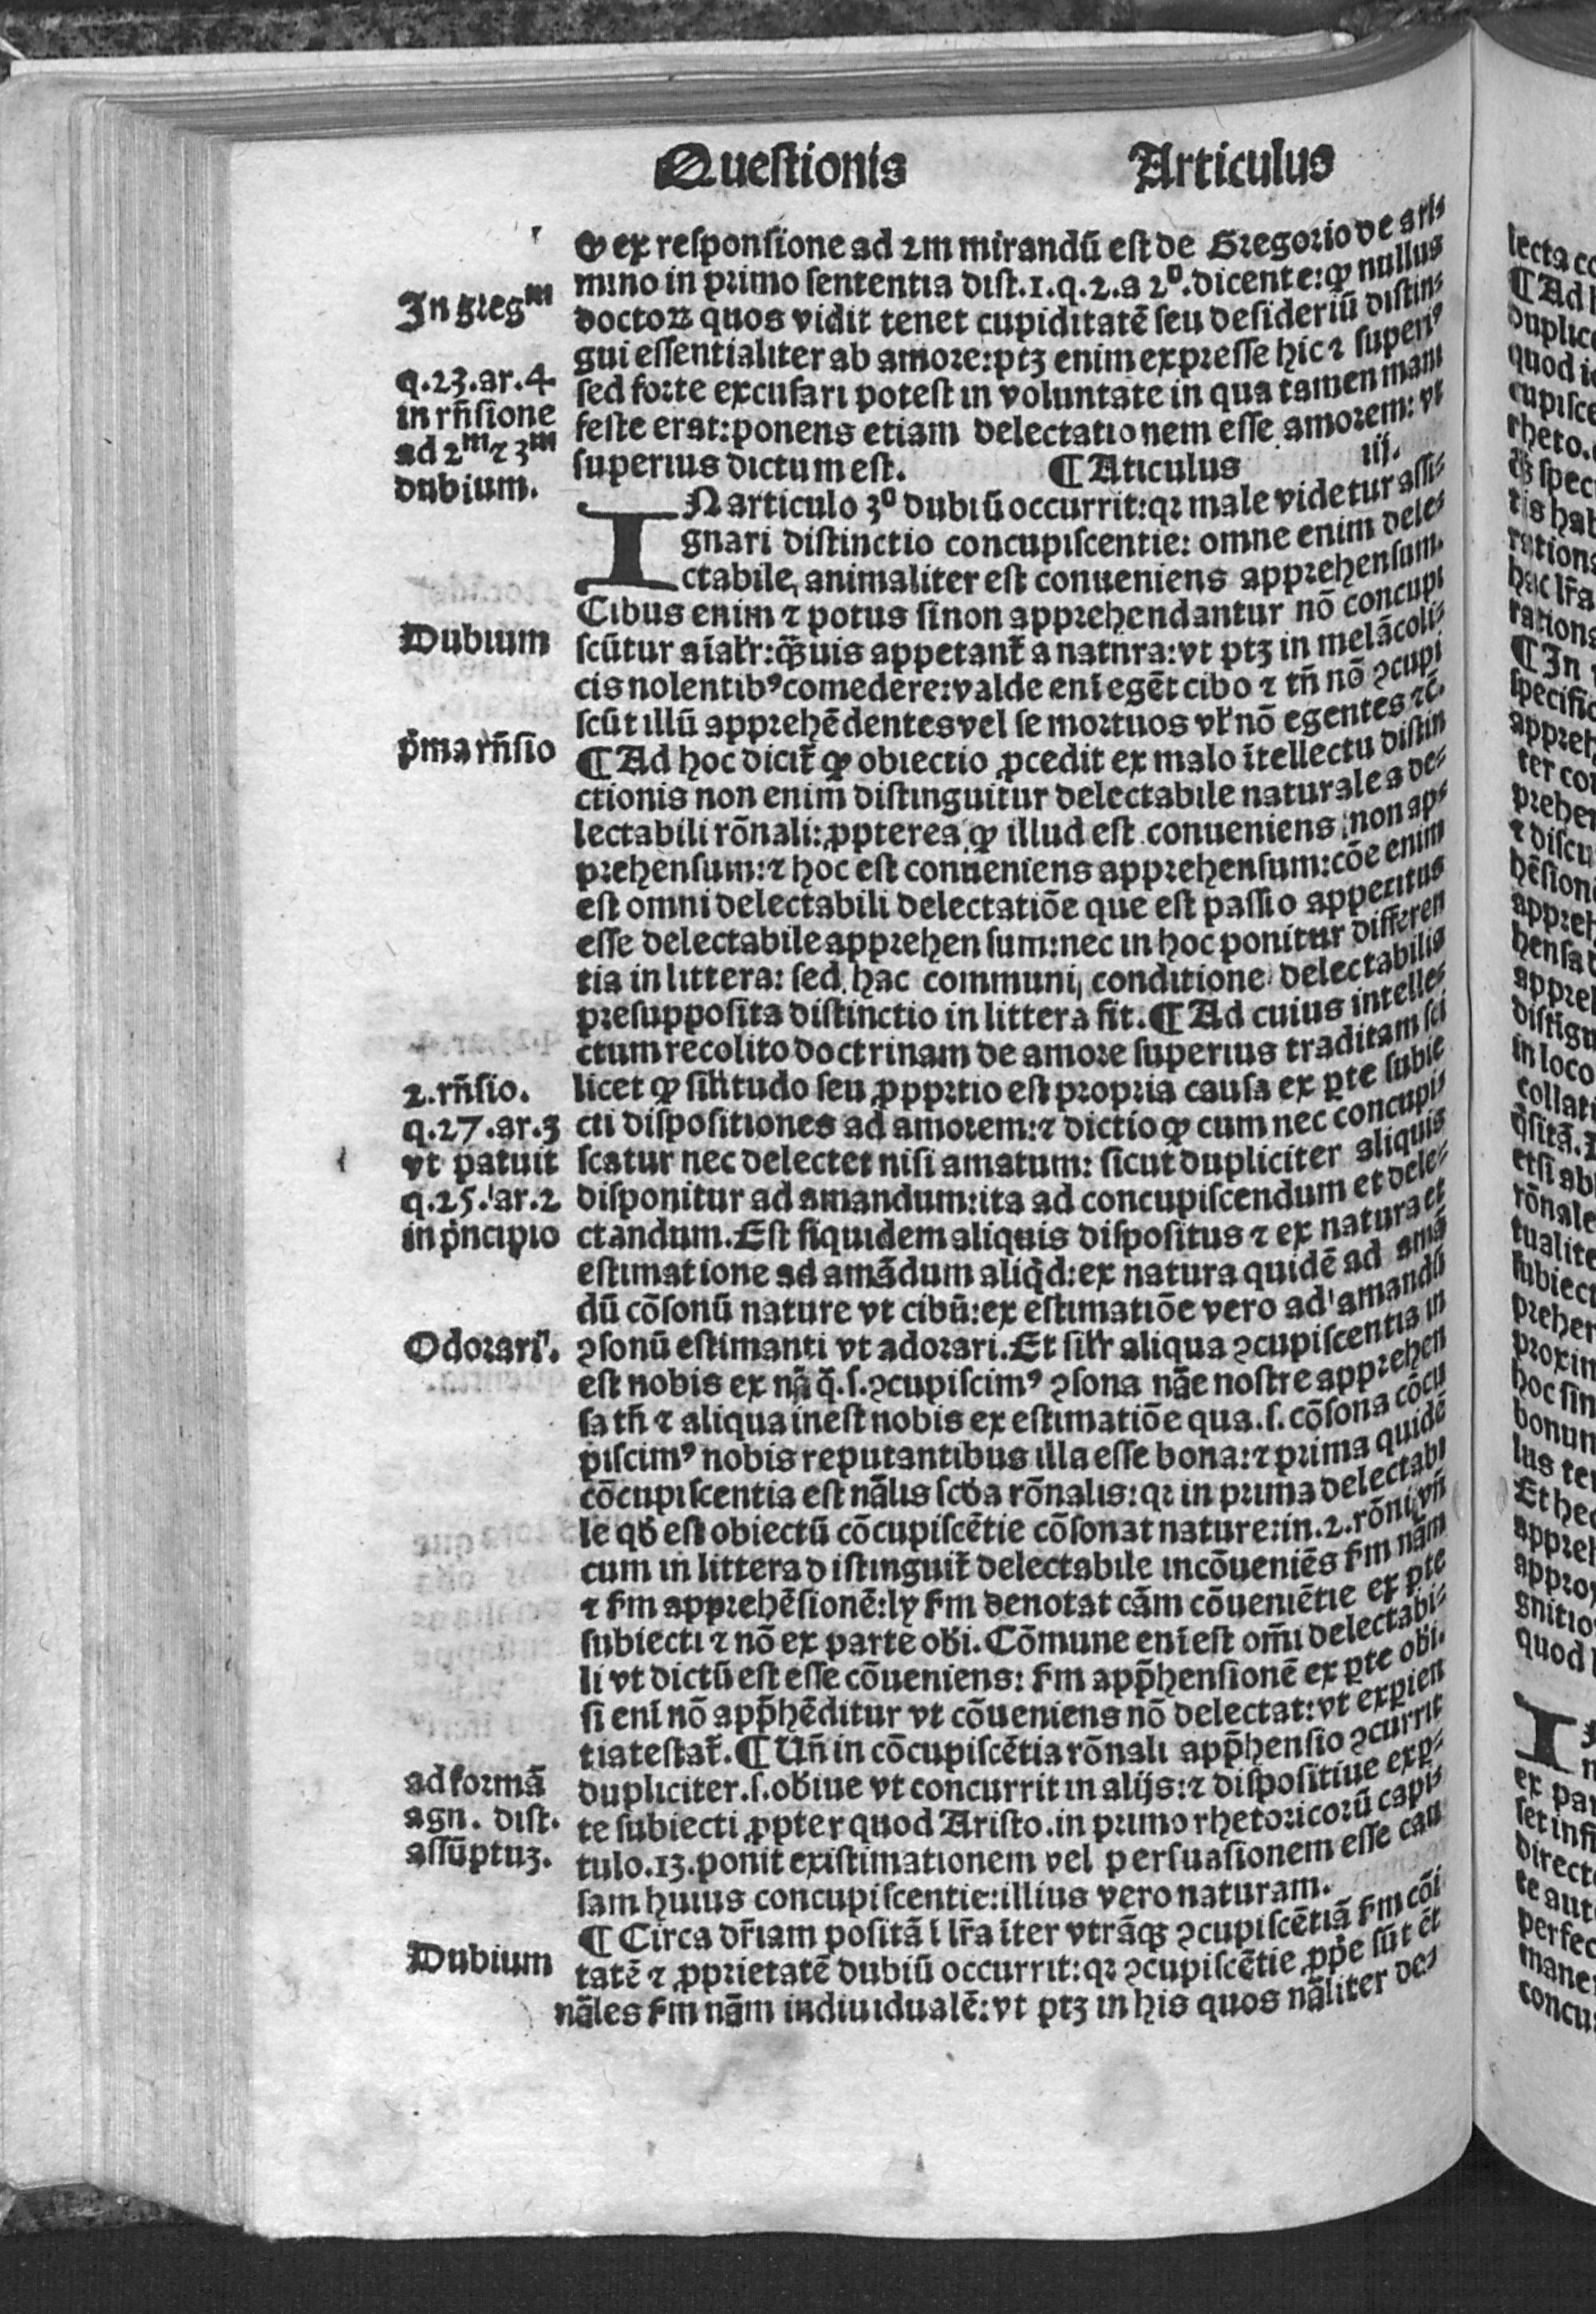 Questionis Articulus
& ex responsione ad 2m mirandū est de Gregorio de ari⸗
mino in primo sententia dist.1.q.2.a 2º.dicente:ꝙ nullus
doctoꝝ quos vidit tenet cupiditatē seu desideriū distin⸗
gui essentialiter ab amore:ptꝫ enim expresse hic ⁊ superiꝰ
sed forte excusari potest in voluntate in qua tamen mani
feste erat:ponens etiam delectationem esse amorem: vt
superius dictum est. ¶ Aticulus iij.
IN articulo 3º dubiū occurrit:qꝛ male videtur assi⸗
gnari distinctio concupiscentie: omne enim dele⸗
ctabile, animaliter est conueniens apprehensum.
Cibus enim ⁊ potus si non apprehendantur nō concupi
scūtur aīalr̄:qꝫuis appetant̄ a natnra:vt ptꝫ in melācoli⸗
cis nolentibꝰ comedere:valde enī egēt cibo ⁊ tn̄ nō ꝯcupi
scūt illū apprehēdentes vel se mortuos vl̓ nō egentes ⁊c̄.
¶ Ad hoc dicit̄ ꝙ obiectio ꝓcedit ex malo ītellectu distin
ctionis non enim distinguitur delectabile naturale a de⸗
lectabili rōnali:ꝓpterea ꝙ illud est conueniens non ap⸗
prehensum:⁊ hoc est conueniens apprehensum:cōe enim
est omni delectabili delectatiōe que est passio appetitus
esse delectabile apprehensum:nec in hoc ponitur differen
tia in littera: sed hac communi conditione delectabilis
presupposita distinctio in littera fit.¶ Ad cuius intelle⸗
ctum recolito doctrinam de amore superius traditam sci
licet ꝙ sil̓itudo seu ꝓpprtio est propria causa ex pte subie
cti dispositiones ad amorem:⁊ dictio ꝙ cum nec concupis
scatur nec delectet nisi amatum: sicut dupliciter aliquis
disponitur ad amandum:ita ad concupiscendum et dele⸗
ctandum.Est siquidem aliquis dispositus ⁊ ex natura et
estimatione ad amādum aliqd̓:ex natura quidē ad amā
dū cōsonū nature vt cibū:ex estimatiōe vero ad amandū
ꝯsonū estimanti vt adorari.Et sil̓r aliqua ꝯcupiscentia in
est nobis ex nā q̄.s.ꝯcupiscimꝰ ꝯsona nāe nostre apprehen
sa tn̄ ⁊ aliqua inest nobis ex estimatiōe qua.s.cōsona cōcu
piscimꝰ nobis reputantibus illa esse bona:⁊ prima quidē
cōcupiscentia est nālis scd̓a rōnalis:qꝛ in prima delectabi
le qd̓ est obiectū cōcupiscētie cōsonat nature:in.2.rōni vn̄
cum in littera distinguit̄ delectabile incōueniēs ẜm nām
⁊ ẜm apprehēsionē:ly ẜm denotat cām cōueniētie ex pte
subiecti ⁊ nō ex parte ob̓i.Cōmune enī est om̄i delectabi⸗
li vt dictū est esse cōueniens: ẜm app̄hensionē ex pte ob̓i.
si enī nō app̄hēditur vt cōueniens nō delectat:vt expien
tia testat̄.¶ Un̄ in cōcupiscētia rōnali app̄hensio ꝯcurrit
dupliciter.s.ob̓iue vt concurrit in alijs:⁊ dispositiue ex p⸗
te subiecti ꝓpter quod Aristo.in primo rhetoricorū capi⸗
tulo.13.ponit existimationem vel persuasionem esse cau
sam huius concupiscentie:illius vero naturam.
¶ Circa dr̄iam positā ī lr̄a īter vtrāqꝫ ꝯcupiscētiā ẜm cōi
tatē ⁊ ꝓprietatē dubiū occurrit:qꝛ ꝯcupiscētie ꝓp̄e sūt ēt
nāles ẜm nām indiuidualē:vt ptꝫ in his quos nāliter de⸗
In gregm
q.23.ar.4
in rn̄sione
ad 2m ⁊ 3m
dubium.
Dubium
p̄ma rn̄sio
2.rn̄sio.
q.27.ar.3
vt patuit
q.25.ar.2
in p̄ncipio
Odorari.
ad formā
agn. dist.
assūptuꝫ.
Dubium